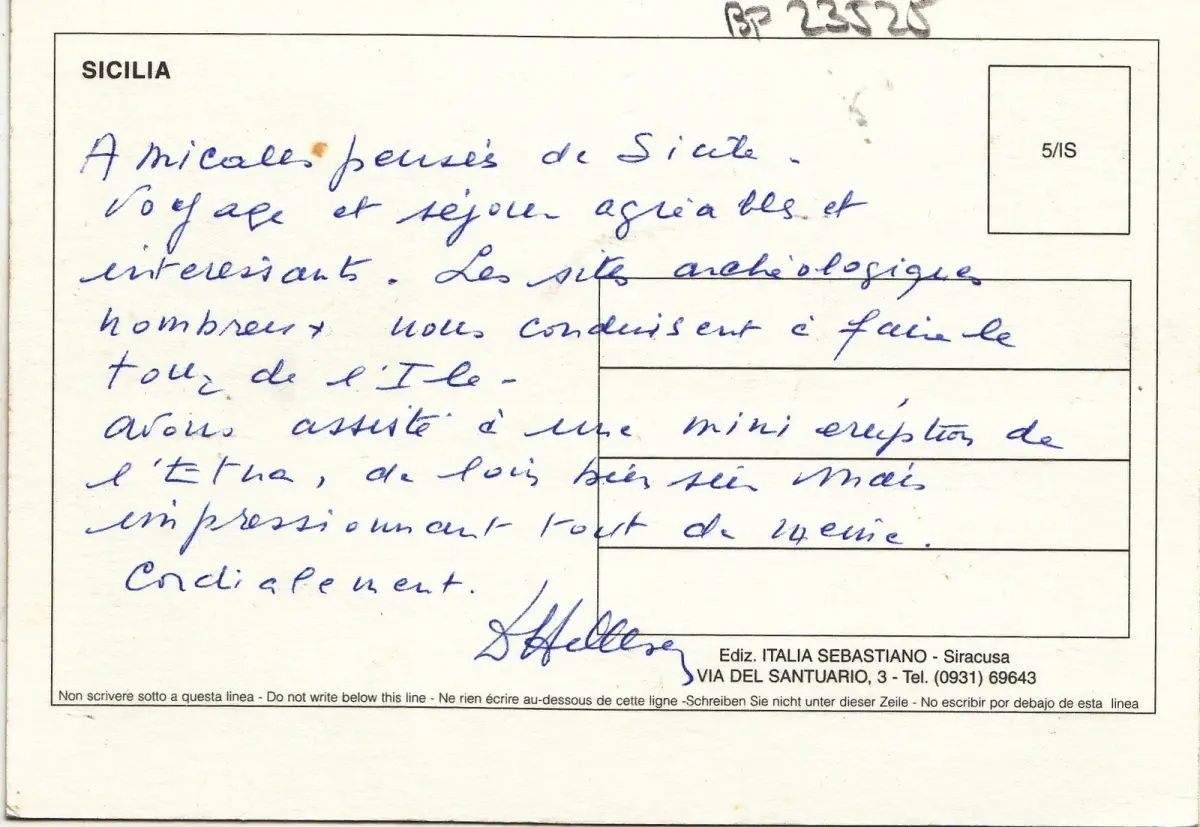 BP 23525
SICILIA
5/IS
Amicales pensés de Sicile.
Voyage et séjour agréables et
intéressants. Les sites archéologiques
nombreux nous conduisent à faire le
tour de l'Ile -
avons assisté à une mini éruption de
l'Etna, de loin bien sûr mais
impressionnant tout de même.
Cordialement.
Ediz. ITALIA SEBASTIANO - Siracusa
VIA DEL SANTUARIO, 3 - Tel. (0931) 69643
Non scrivere sotto a questa linea - Do not write below this line - Ne rien écrire au-dessous de cette ligne -Schreiben Sie nicht unter dieser Zeile - No escribir por debajo de esta linea